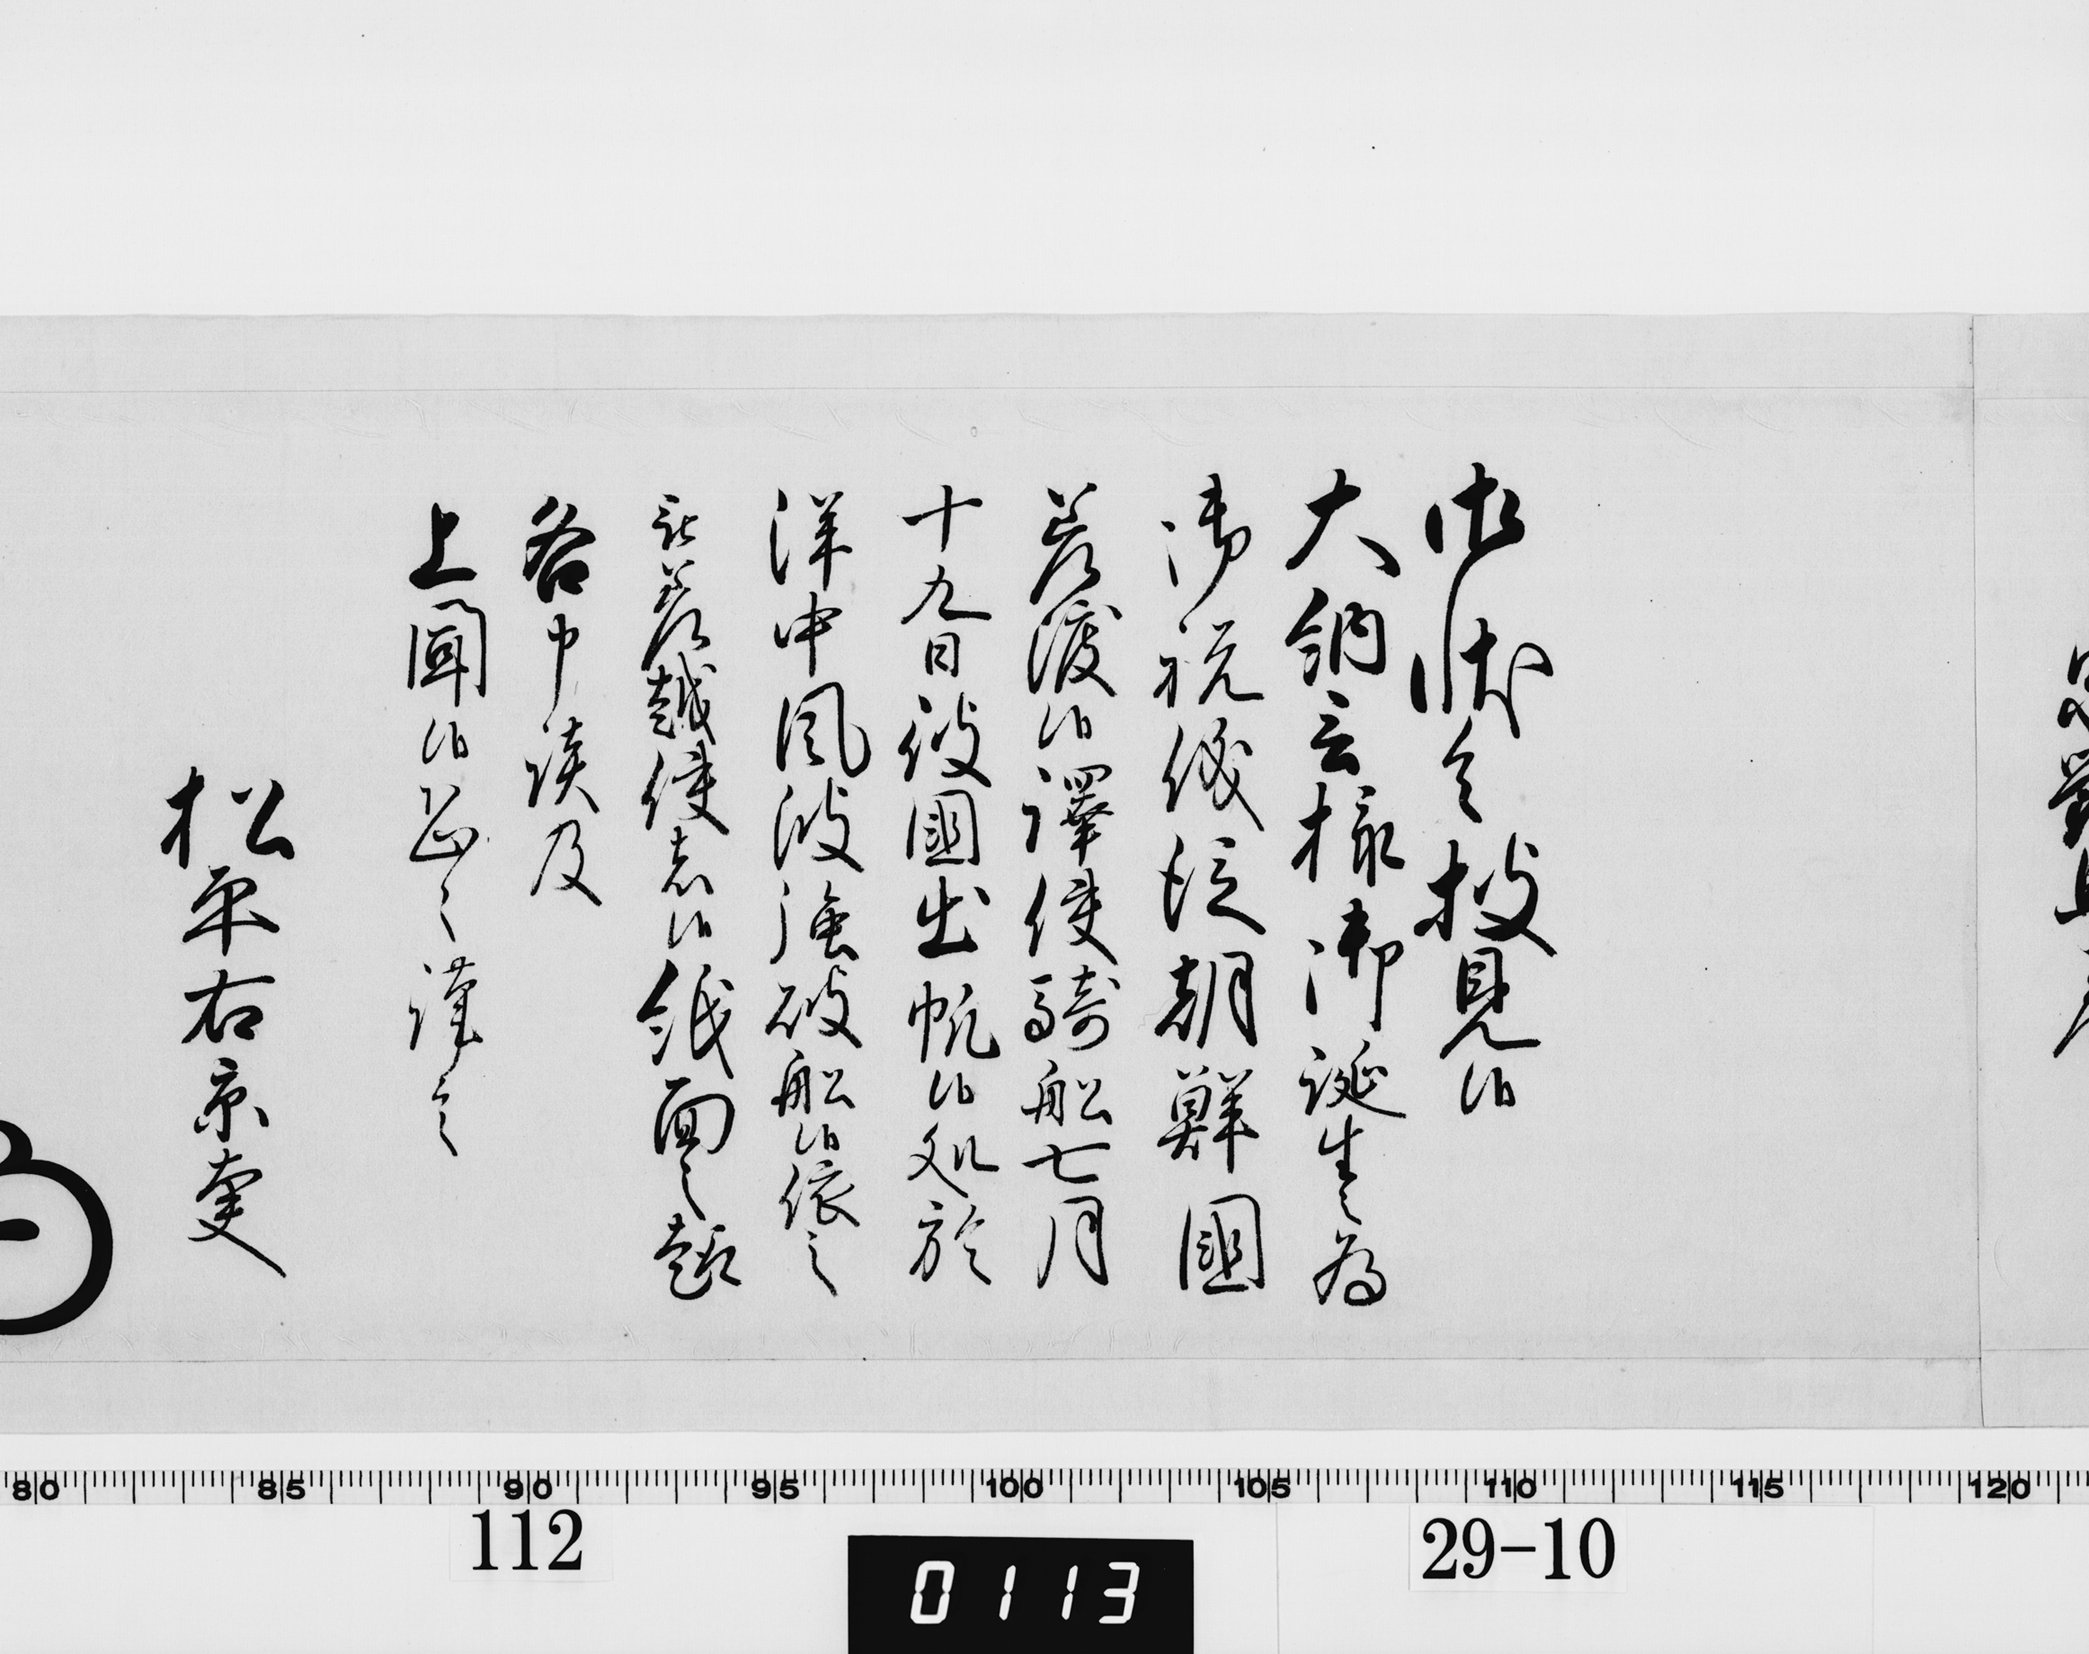 御状令披見候
大納言様御誕生之為
御祝儀従朝鮮國
差渡候譯使騎船七月
十九日彼國出帆候処於
洋中風波強破船候依之
被差越使者候紙面之趣
各申談及
上聞候恐々謹言
松平右京大夫
80 85 90 95 100 105 110 115 120
112
0113
29-10